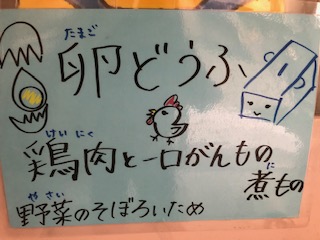 たまご
卵どうふ
けい にく
鶏肉と一口がんもの
に
煮もの
や さい
野菜のそぼろいため